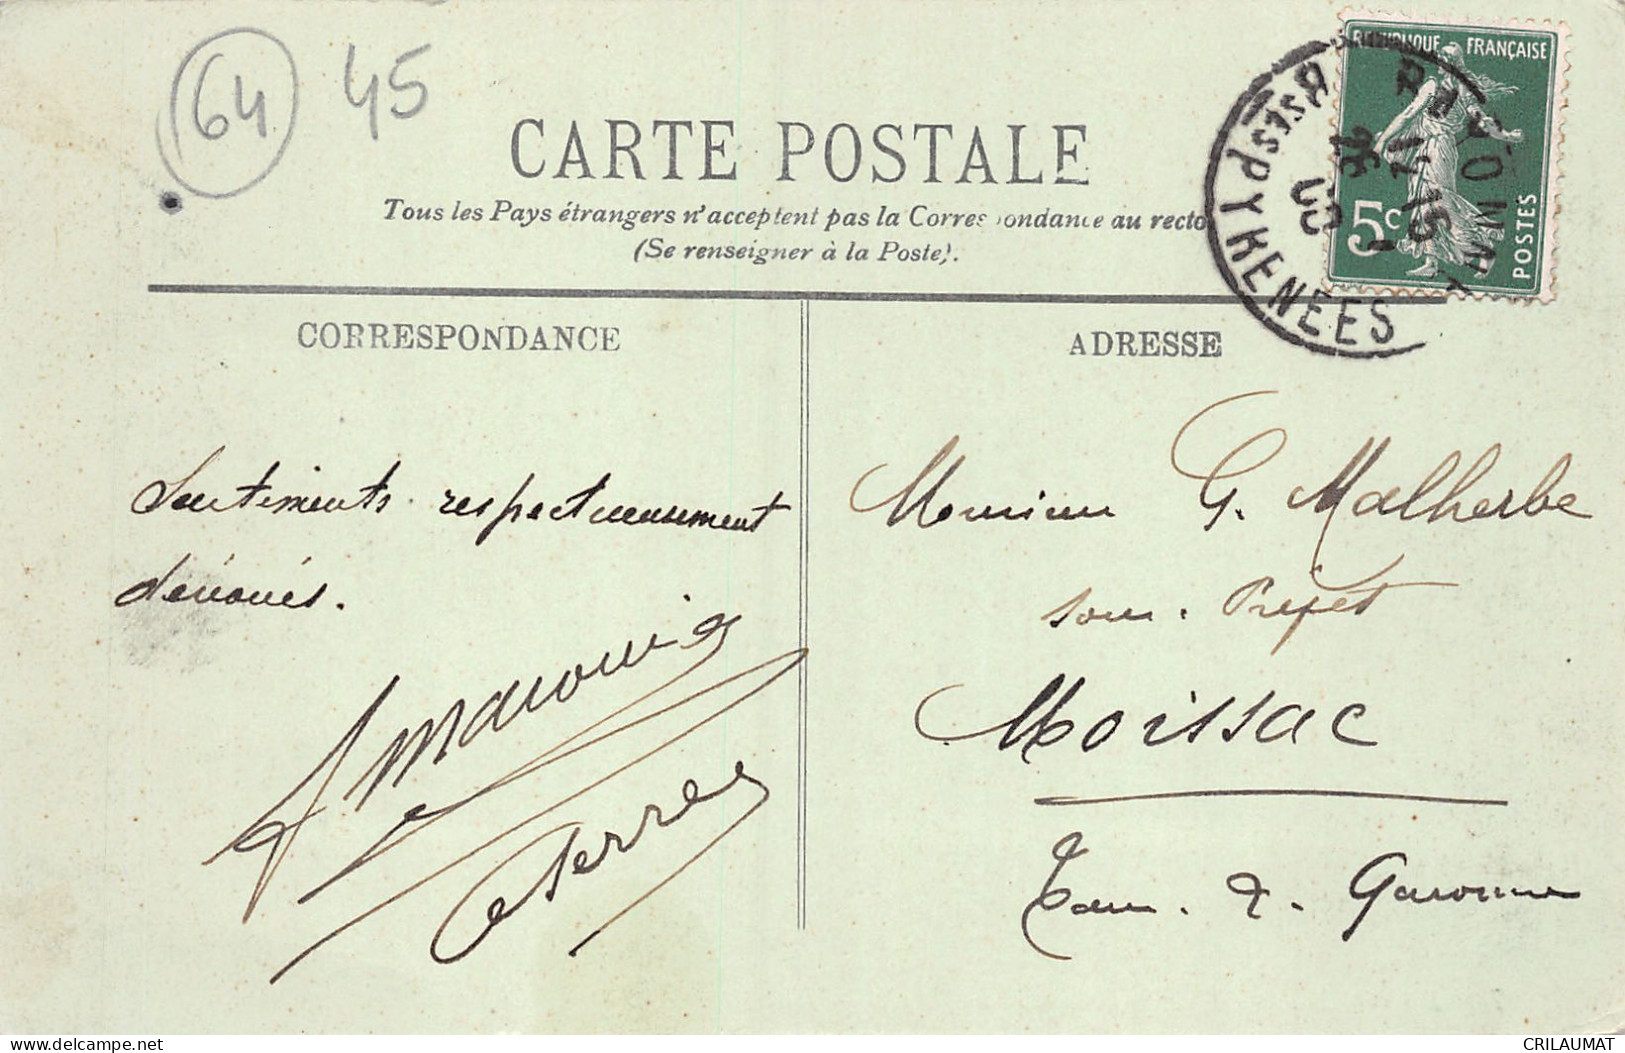 64 45
CARTE POSTALE
Tous les Pays étrangers n'acceptent pas la Correspondance au recto
(Se renseigner à la Poste).
RÉPUBLIQUE FRANÇAISE
5c
POSTES
BSES PYRENEES
CORRESPONDANCE
ADRESSE
Sentiments respectueusement
dévoués.
Monsieur G. Malherbe
sous-Préfet
Moissac
Tarn-&-Garonne
delcampe.net
CRILAUMAT